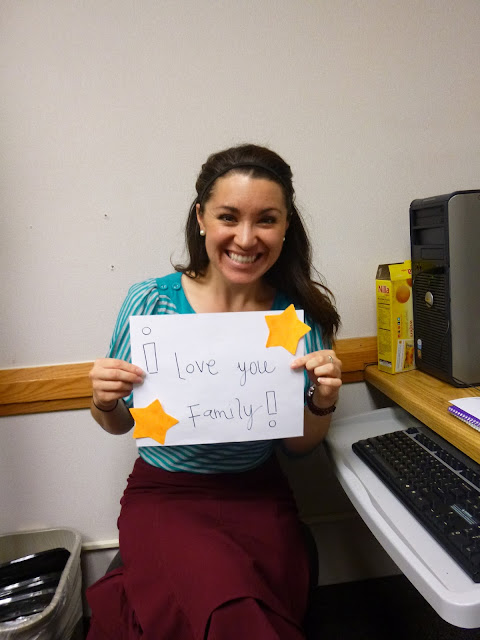 i love you
Family!
Nilla